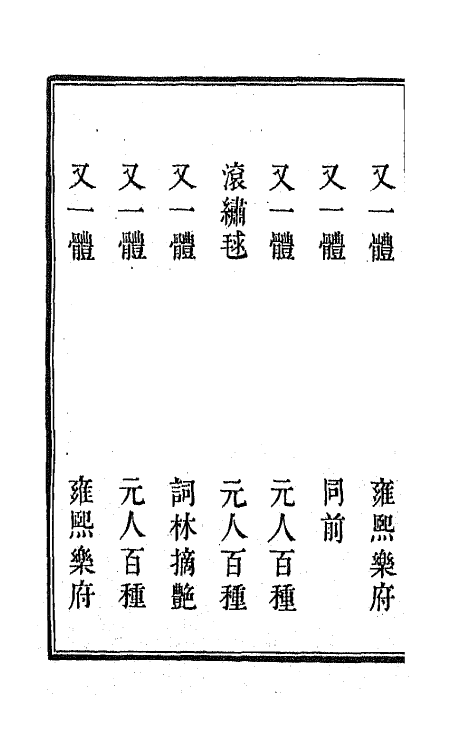 又一體　雍熙樂府
又一體　同前
又一體　元人百種
滾繡毬　元人百種
又一體　詞林摘艷
又一體　元人百種
又一體　雍熙樂府